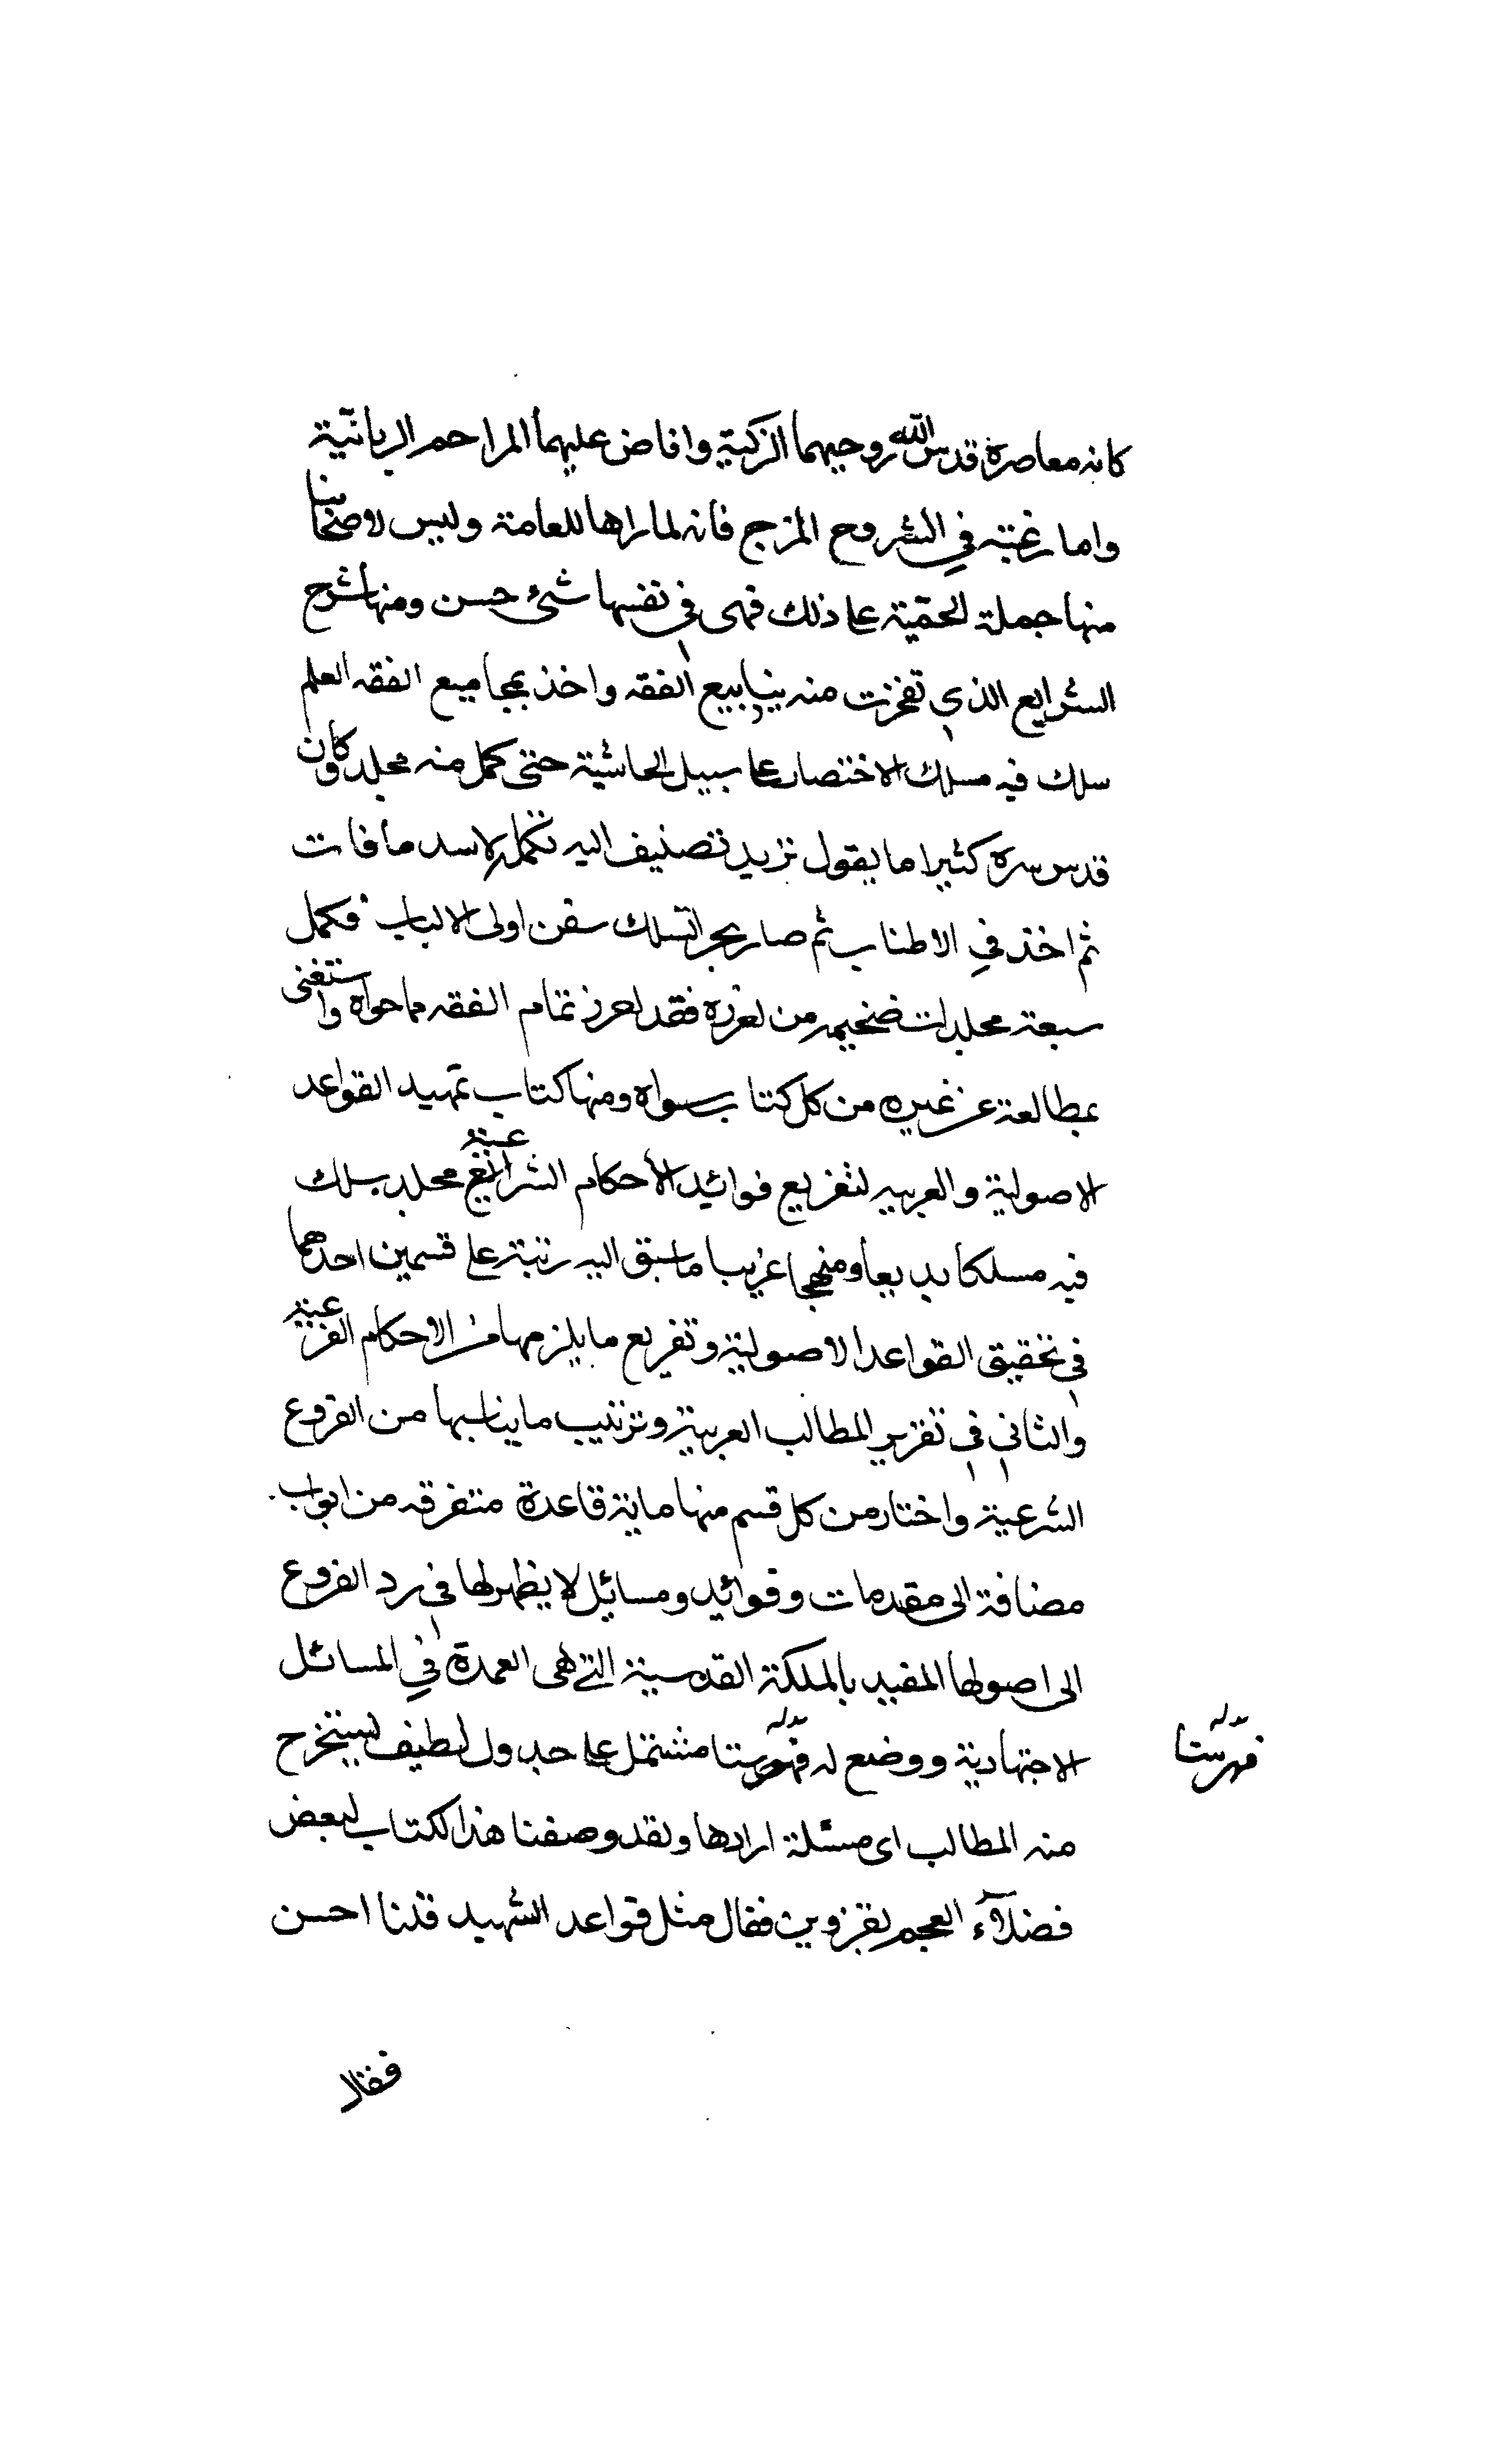 كانه معاصره قدس الله روحيهما الزكية وافاض عليهما المراحم الربانية
واما رغبته في الشروح المزج فانه لما راها للعامة وليس لاصحابنا
منها جملة الحمية على ذلك فهى في نفسها شئ حسن ومنها شرح
الشرايع الذي تفجرت منه ينابيع الفقه واخذ بمجاميع الفقه العلم
سلك فيه مسلك الاختصار على سبيل الحاشية حتى كمل منه مجلد وكان
قدس سره كثيرا ما يقول نريد نضيف اليه تكملة لاسد ما فات
ثم اخذ في الاطناب ثم صار بحرا تسلك سفن اولى الالباب فكمل
سبعة مجلدات ضخيمه من فقد تمام الفقه مما حواه واستغنى
بمطالعة عن غيره من كل كتاب سواه ومنها كتاب تمهيد القواعد
الاصولية والعربيه لتفريع فوائد الأحكام الشرعية مجلد سلك
فيه مسلكا بديعا ومنهجا غريبا ما سبق اليه رتبة على قسمين احدهما
في تحقيق القواعد الاصولية وتفريع ما يلزمها من الاحكام الفرعية
والثانى في تقرير المطالب العربية وترتيب ما يناسبها من الفروع
الشرعية واختار من كل قسم منها ماية قاعدة متفرقه من ابواب
مضافة الى مقدمات وفوائد ومسائل لا يظهر لها في رد الفروع
الى اصولها المفيد بالملكة القدسية التى هى العمدة في المسائل
الاجتهادية ووضع له فهرستا مشتمل على جدول لطيف ليستخرج
فهرستا
منه المطالب اى مسئلة ارادها ولقد وصفنا هذا الكتاب لبعض
فضلآء العجم بقزوين فقال مثل قواعد الشهيد قلنا احسن
فقال